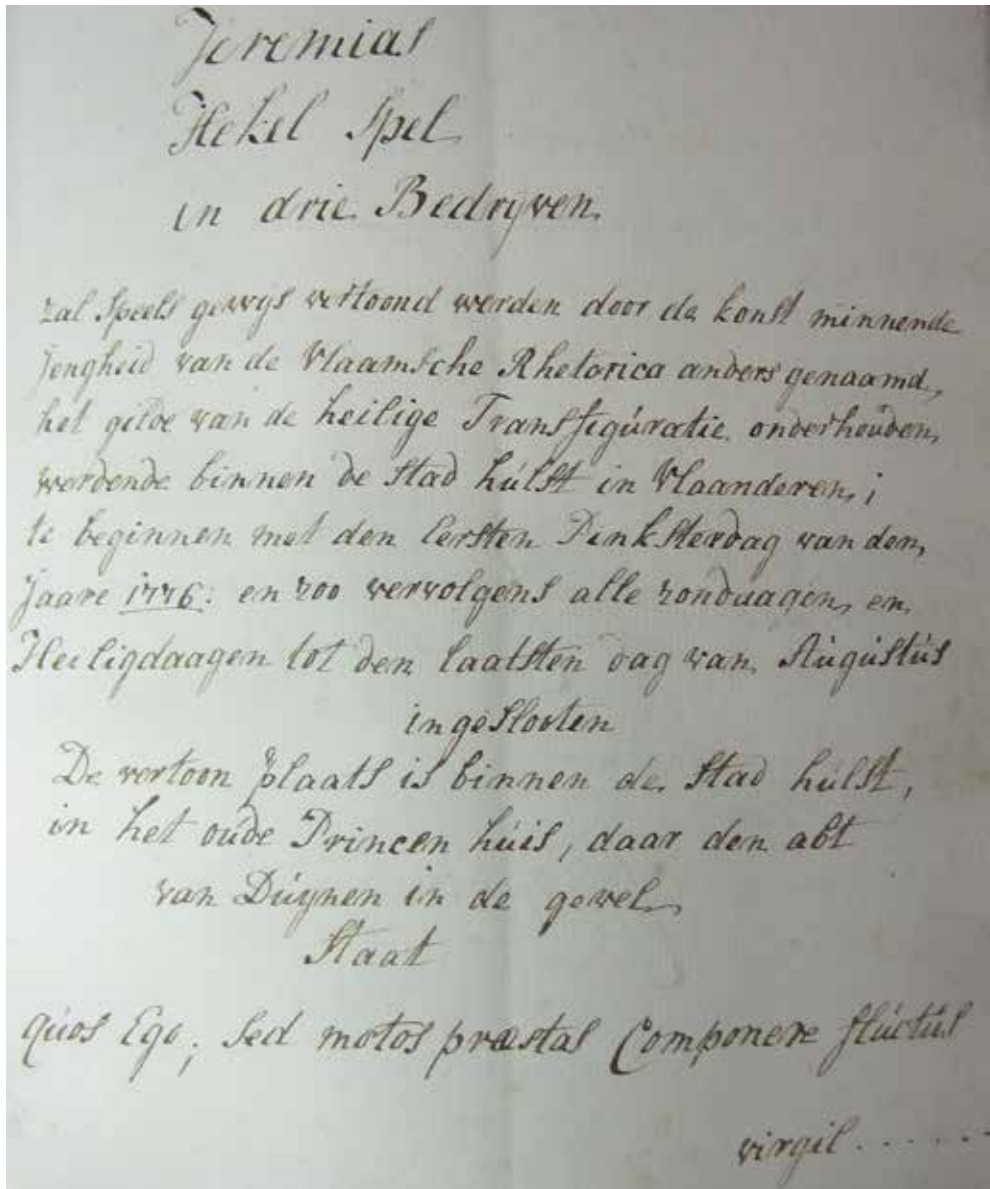 Jeremias
Hekel Spel
in drie Bedryven
zal Speels gewys vertoond werden door de konst minnende
Jongheid van de Vlaamsche Rhetorica anders genaamd,
het gilde van de heilige Transfigúratie onderhoúden,
werdende binnen de Stad húlst in Vlaanderen;
te beginnen met den Eersten Pinksterdag van den,
Jaare 1776: en zoo vervolgens alle zondaagen, en
Heiligdaagen tot den laatsten dag van Aúgústús
ingeslooten
De vertoon plaats is binnen de Stad húlst,
in het oúde Princen húis, daar den abt
van Dúynen in de gevel
Staat
Qúos Ego; Sed motos præstas Componere flúctús
virgil......